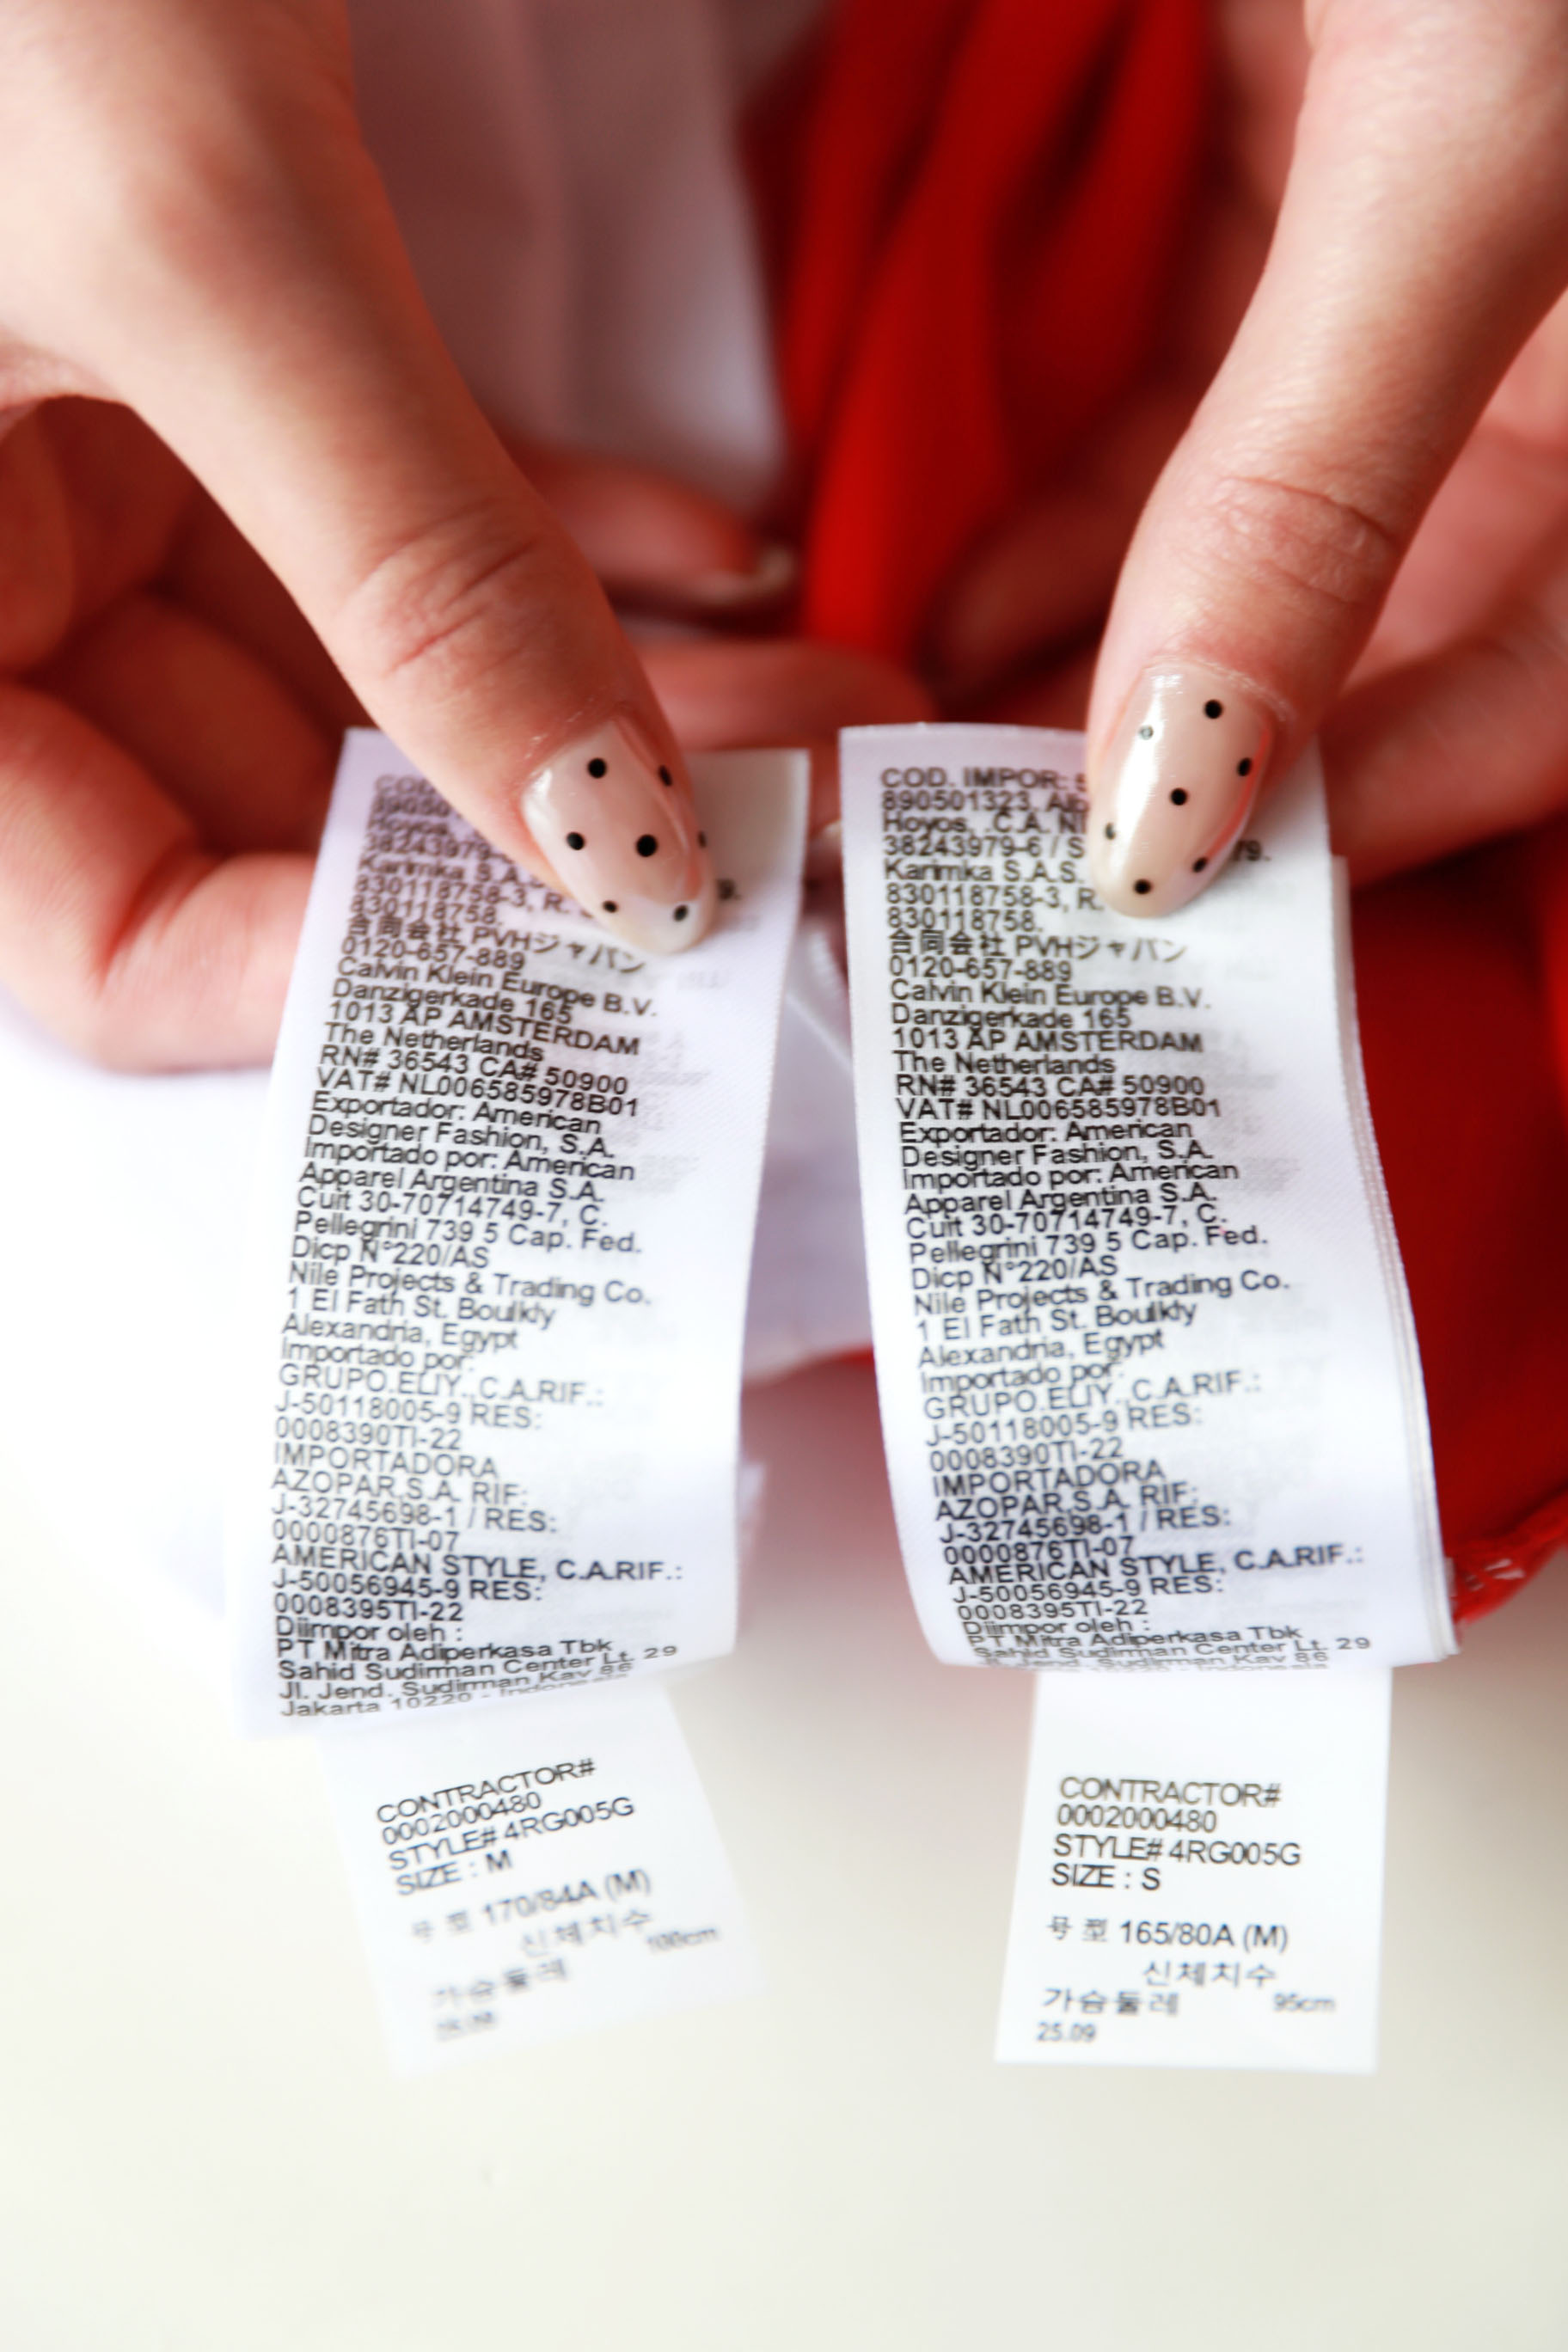 890501323, Alb
Hoyos, .C.A. NI
38243979-
Karimka S.A.S.
830118758-3, R.
830118758.
合同会社 PVHジャパン
0120-657-889
Calvin Klein Europe B.V.
Danzigerkade 165
1013 AP AMSTERDAM
The Netherlands
RN# 36543 CA# 50900
VAT# NL006585978B01
Exportador: American
Designer Fashion, S.A.
Importado por: American
Apparel Argentina S.A.
Cuit 30-70714749-7, C.
Pellegrini 739 5 Cap. Fed.
Dicp N°220/AS
Nile Projects & Trading Co.
1 El Fath St. Boulkly
Alexandria, Egypt
Importado por:
GRUPO.ELIY., C.A.RIF.:
J-50118005-9 RES:
0008390TI-22
IMPORTADORA
AZOPAR,S.A. RIF:
J-32745698-1 / RES:
0000876TI-07
AMERICAN STYLE, C.A.RIF.:
J-50056945-9 RES:
0008395TI-22
Diimpor oleh :
PT Mitra Adiperkasa Tbk
Sahid Sudirman Center Lt. 29
Jl. Jend. Sudirman Kav 86
Jakarta 10220 - Indonesia
CONTRACTOR#
0002000480
STYLE# 4RG005G
SIZE : M
号 型 170/84A (M)
신체치수
가슴둘레 100cm
25.09
COD. IMPOR: 5
890501323, Alb
Hoyos, .C.A. NI
38243979-6 / S 79.
Karimka S.A.S.
830118758-3, R.
830118758.
合同会社 PVHジャパン
0120-657-889
Calvin Klein Europe B.V.
Danzigerkade 165
1013 AP AMSTERDAM
The Netherlands
RN# 36543 CA# 50900
VAT# NL006585978B01
Exportador: American
Designer Fashion, S.A.
Importado por: American
Apparel Argentina S.A.
Cuit 30-70714749-7, C.
Pellegrini 739 5 Cap. Fed.
Dicp N°220/AS
Nile Projects & Trading Co.
1 El Fath St. Boulkly
Alexandria, Egypt
Importado por:
GRUPO.ELIY., C.A.RIF.:
J-50118005-9 RES:
0008390TI-22
IMPORTADORA
AZOPAR,S.A. RIF:
J-32745698-1 / RES:
0000876TI-07
AMERICAN STYLE, C.A.RIF.:
J-50056945-9 RES:
0008395TI-22
Diimpor oleh :
PT Mitra Adiperkasa Tbk
Sahid Sudirman Center Lt. 29
Sudirman Kav 86
CONTRACTOR#
0002000480
STYLE# 4RG005G
SIZE : S
号 型 165/80A (M)
신체치수
가슴둘레 95cm
25.09